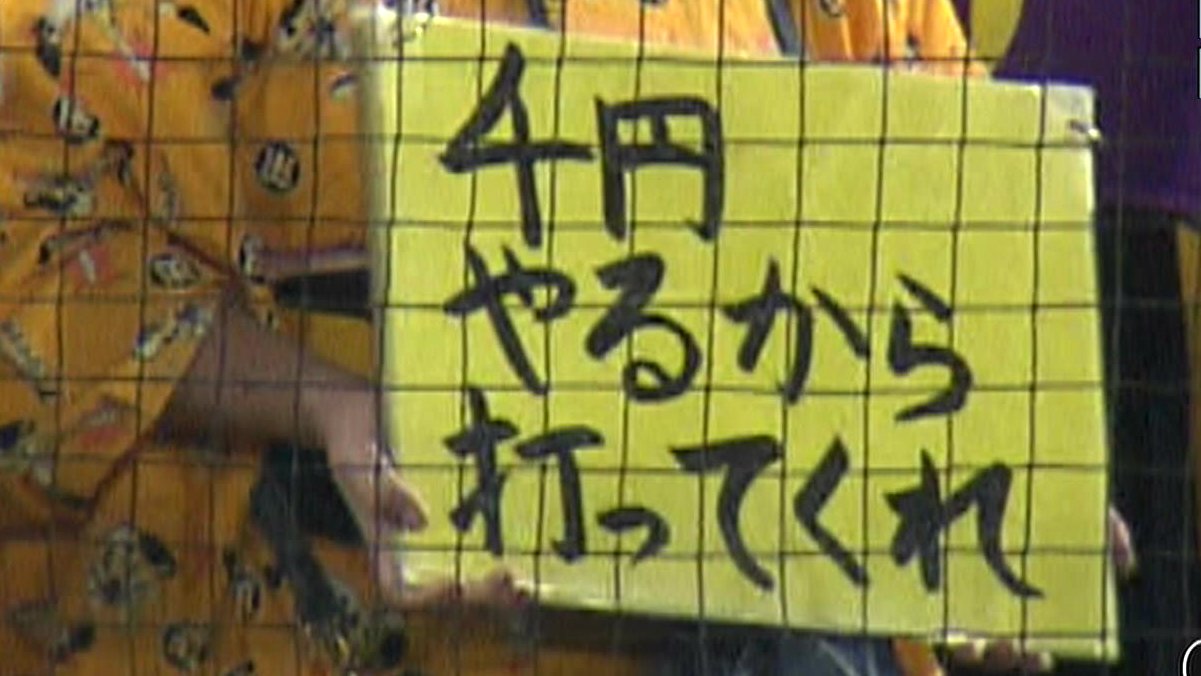 4円
やるから
打ってくれ